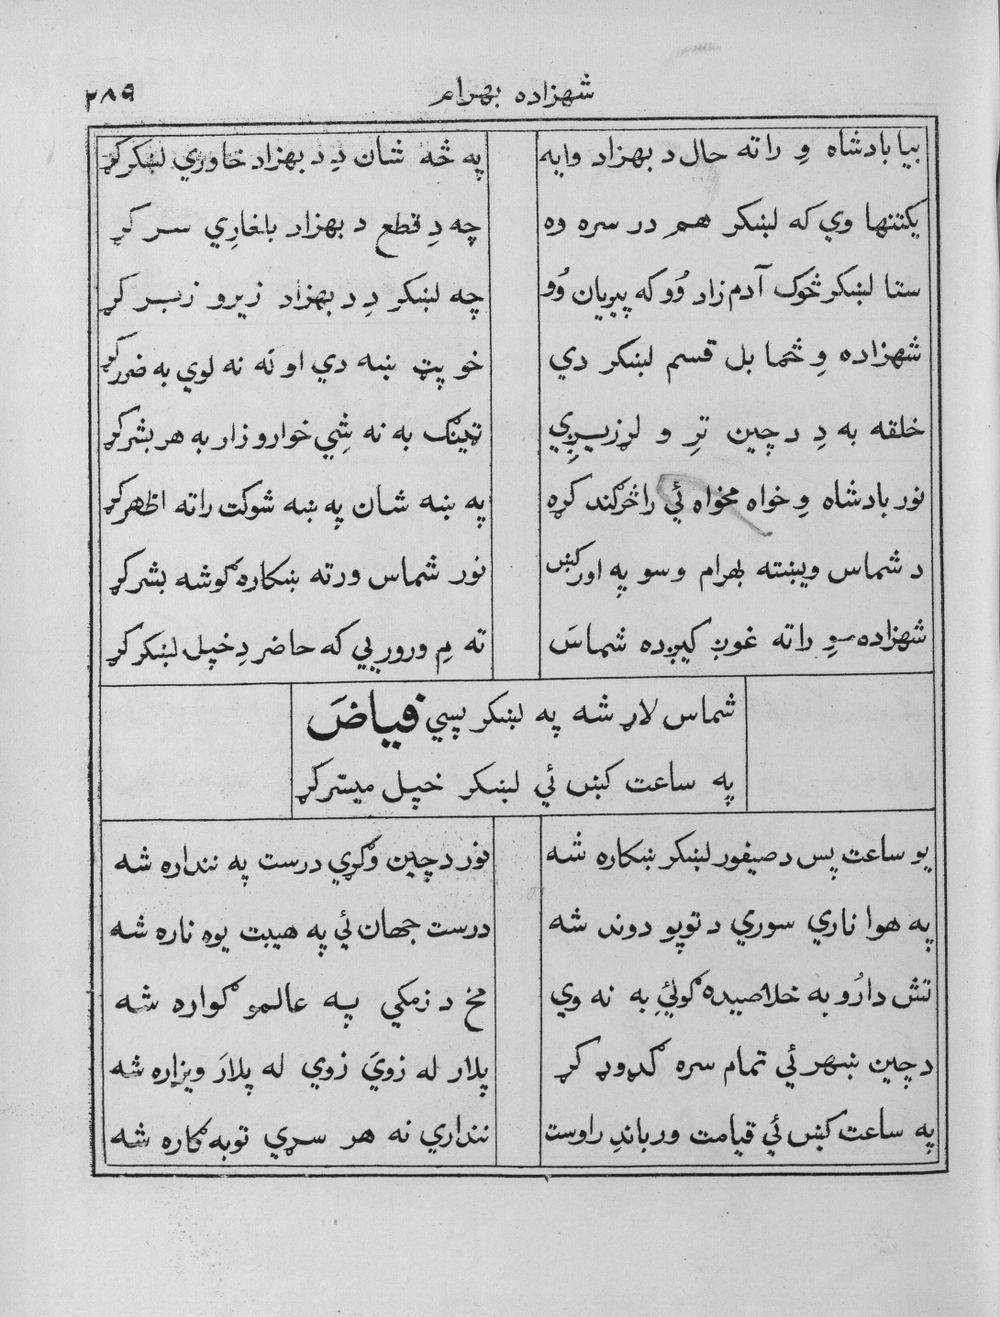 شهزاده بهرام
۲۸۹
بيا بادشاه وِ راته حال د بهزاد وايه
په څه شان دِ د بهزاد خاوري لښکر کړ
يکتنها وي که لښکر هم در سره وه
چه دِ قطع د بهزاد بلغارِي سر کړ
ستا لښکر څوک آدم زاد وُو که پيريان وُو
چه لښکر دِ د بهزاد زير و زبر کړ
شهزاده وِ څما بل قسم لښکر دي
خو پټ ښه دي او نه نه لوي به ضرر کړ
خلقه به دِ د چين ترِ و لړزيږِي
ټينګ به نه شِي خوار و زار به هر بشر کړ
نور بادشاه وِ خواه مخواه ئي راڅرګند کړه
په ښه شان په ښه شوکت راته اظهر کړ
د شماس ويښته بهرام وسو په اور کښ
نور شماس ورته ښکاره ګوشه بشر کړ
شهزاده وِ راته غوږ کيږده شماسَ
ته مِ ورور يي که حاضر دِ خپل لښکر کړ
شماس لاړ شه په لښکر پسي فياضَ
په ساعت کښ ئي لښکر خپل ميسّر کړ
يو ساعت پس د صيفور لښکر ښکاره شه
نور د چين وګړي درست په ننداره شه
په هوا ناري سوري د توپو دوند شه
درست جهان ئي په هيبت يوه ناره شه
تش دارُو به خلاصيده ګولئِ به نه وي
مخ د زمکي په عالمو ګواره شه
د چين ښهر ئي تمام سره ګډوډ کړ
پلار له زويَ زوي له پلارَ ويزاره شه
په ساعت کښ ئي قيامت ورباندِ راوست
ننداري نه هر سړي توبه ګاره شه